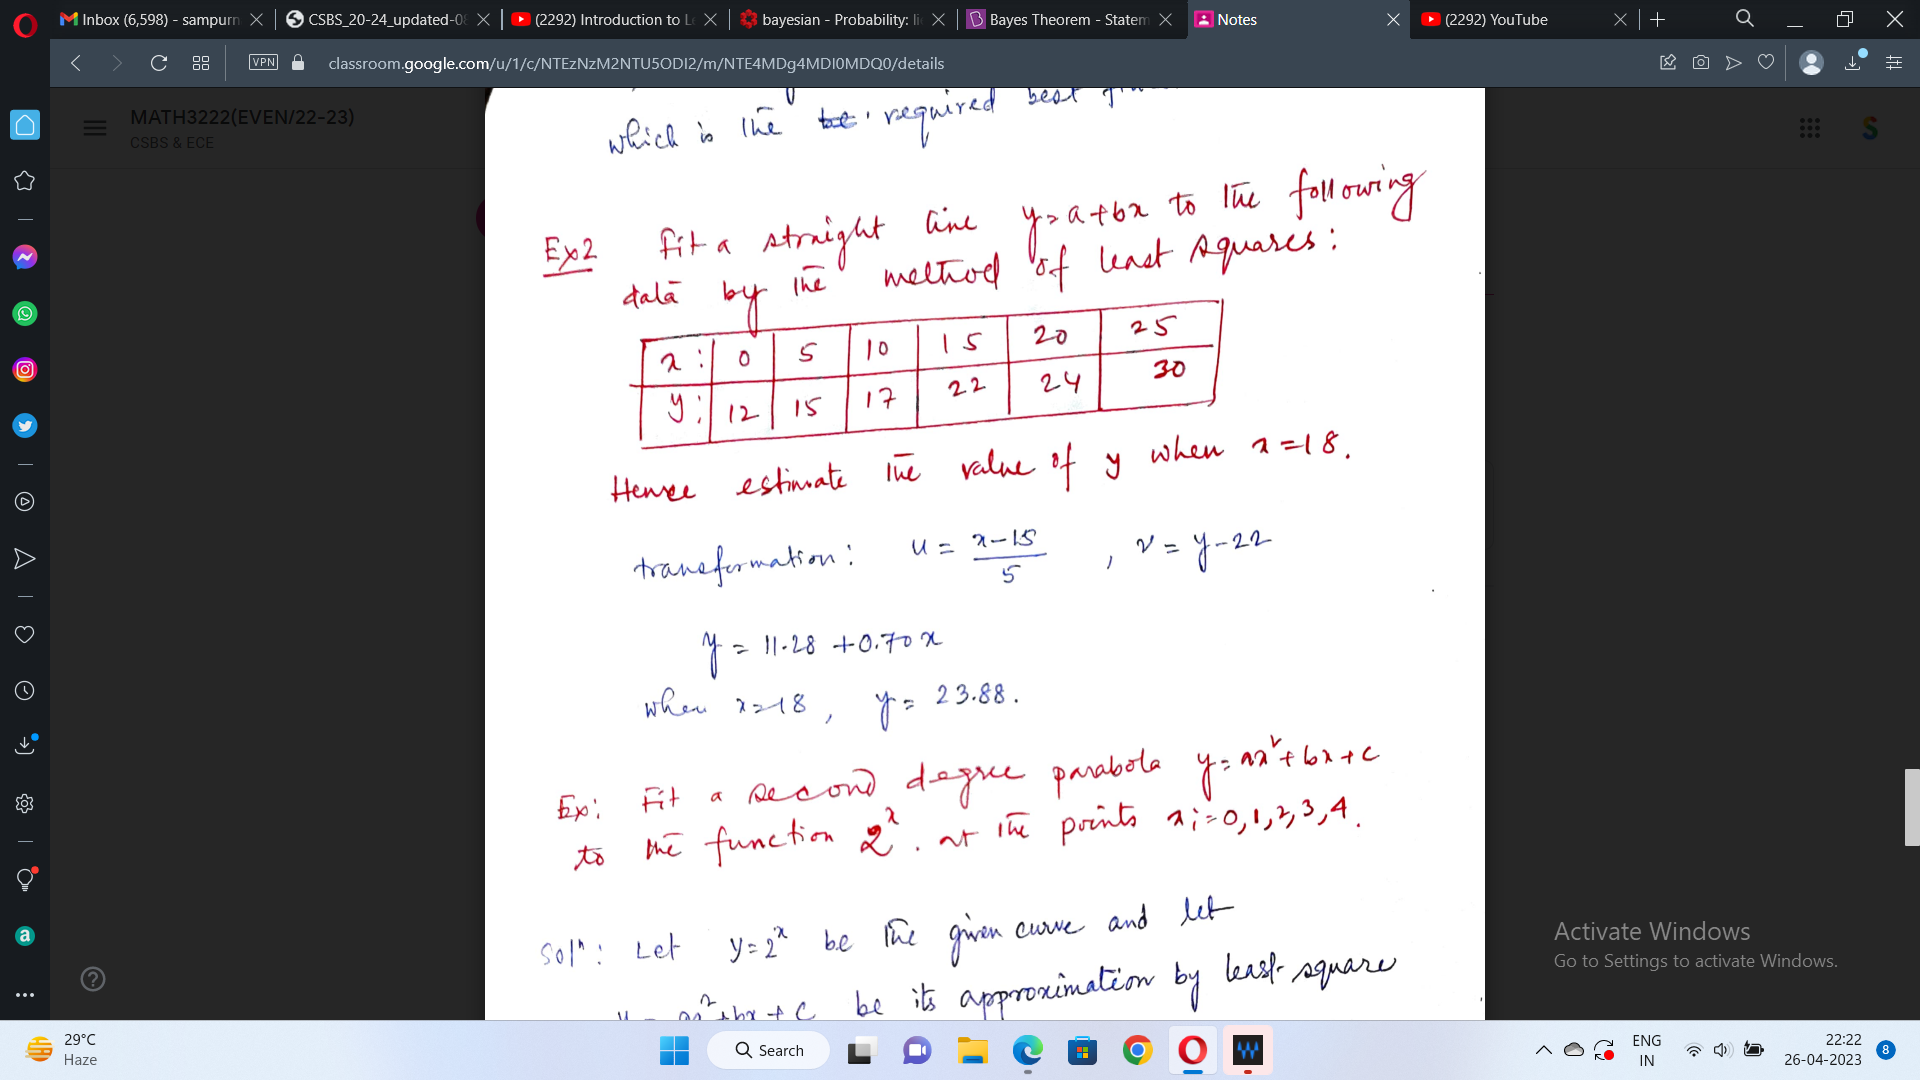 Inbox (6,598) - sampurn
CSBS_20-24_updated-08
(2292) Introduction to Le
bayesian - Probability: li
Bayes Theorem - Statem
Notes
(2292) YouTube
VPN
classroom.google.com/u/1/c/NTEzNzM2NTU5ODI2/m/NTE4MDg4MDI0MDQ0/details
MATH3222(EVEN/22-23)
CSBS & ECE
which is the be. required best
Ex2 Fit a straight line y=a+bx to the following
data by the method of least squares:
x: 0 5 10 15 20 25
y: 12 15 17 22 24 30
Hence estimate the value of y when x=18.
transformation: u = x-15/5 , v = y-22
y = 11.28 +0.70x
when x=18, y= 23.88.
Ex: Fit a second degree parabola y=ax²+bx+c
to the function 2ˣ. at the points xi=0,1,2,3,4.
Solⁿ: Let y=2ˣ be the given curve and let
y = ax²+bx+c be its approximation by least-square
Activate Windows
Go to Settings to activate Windows.
29°C
Haze
Search
ENG
IN
22:22
26-04-2023
8